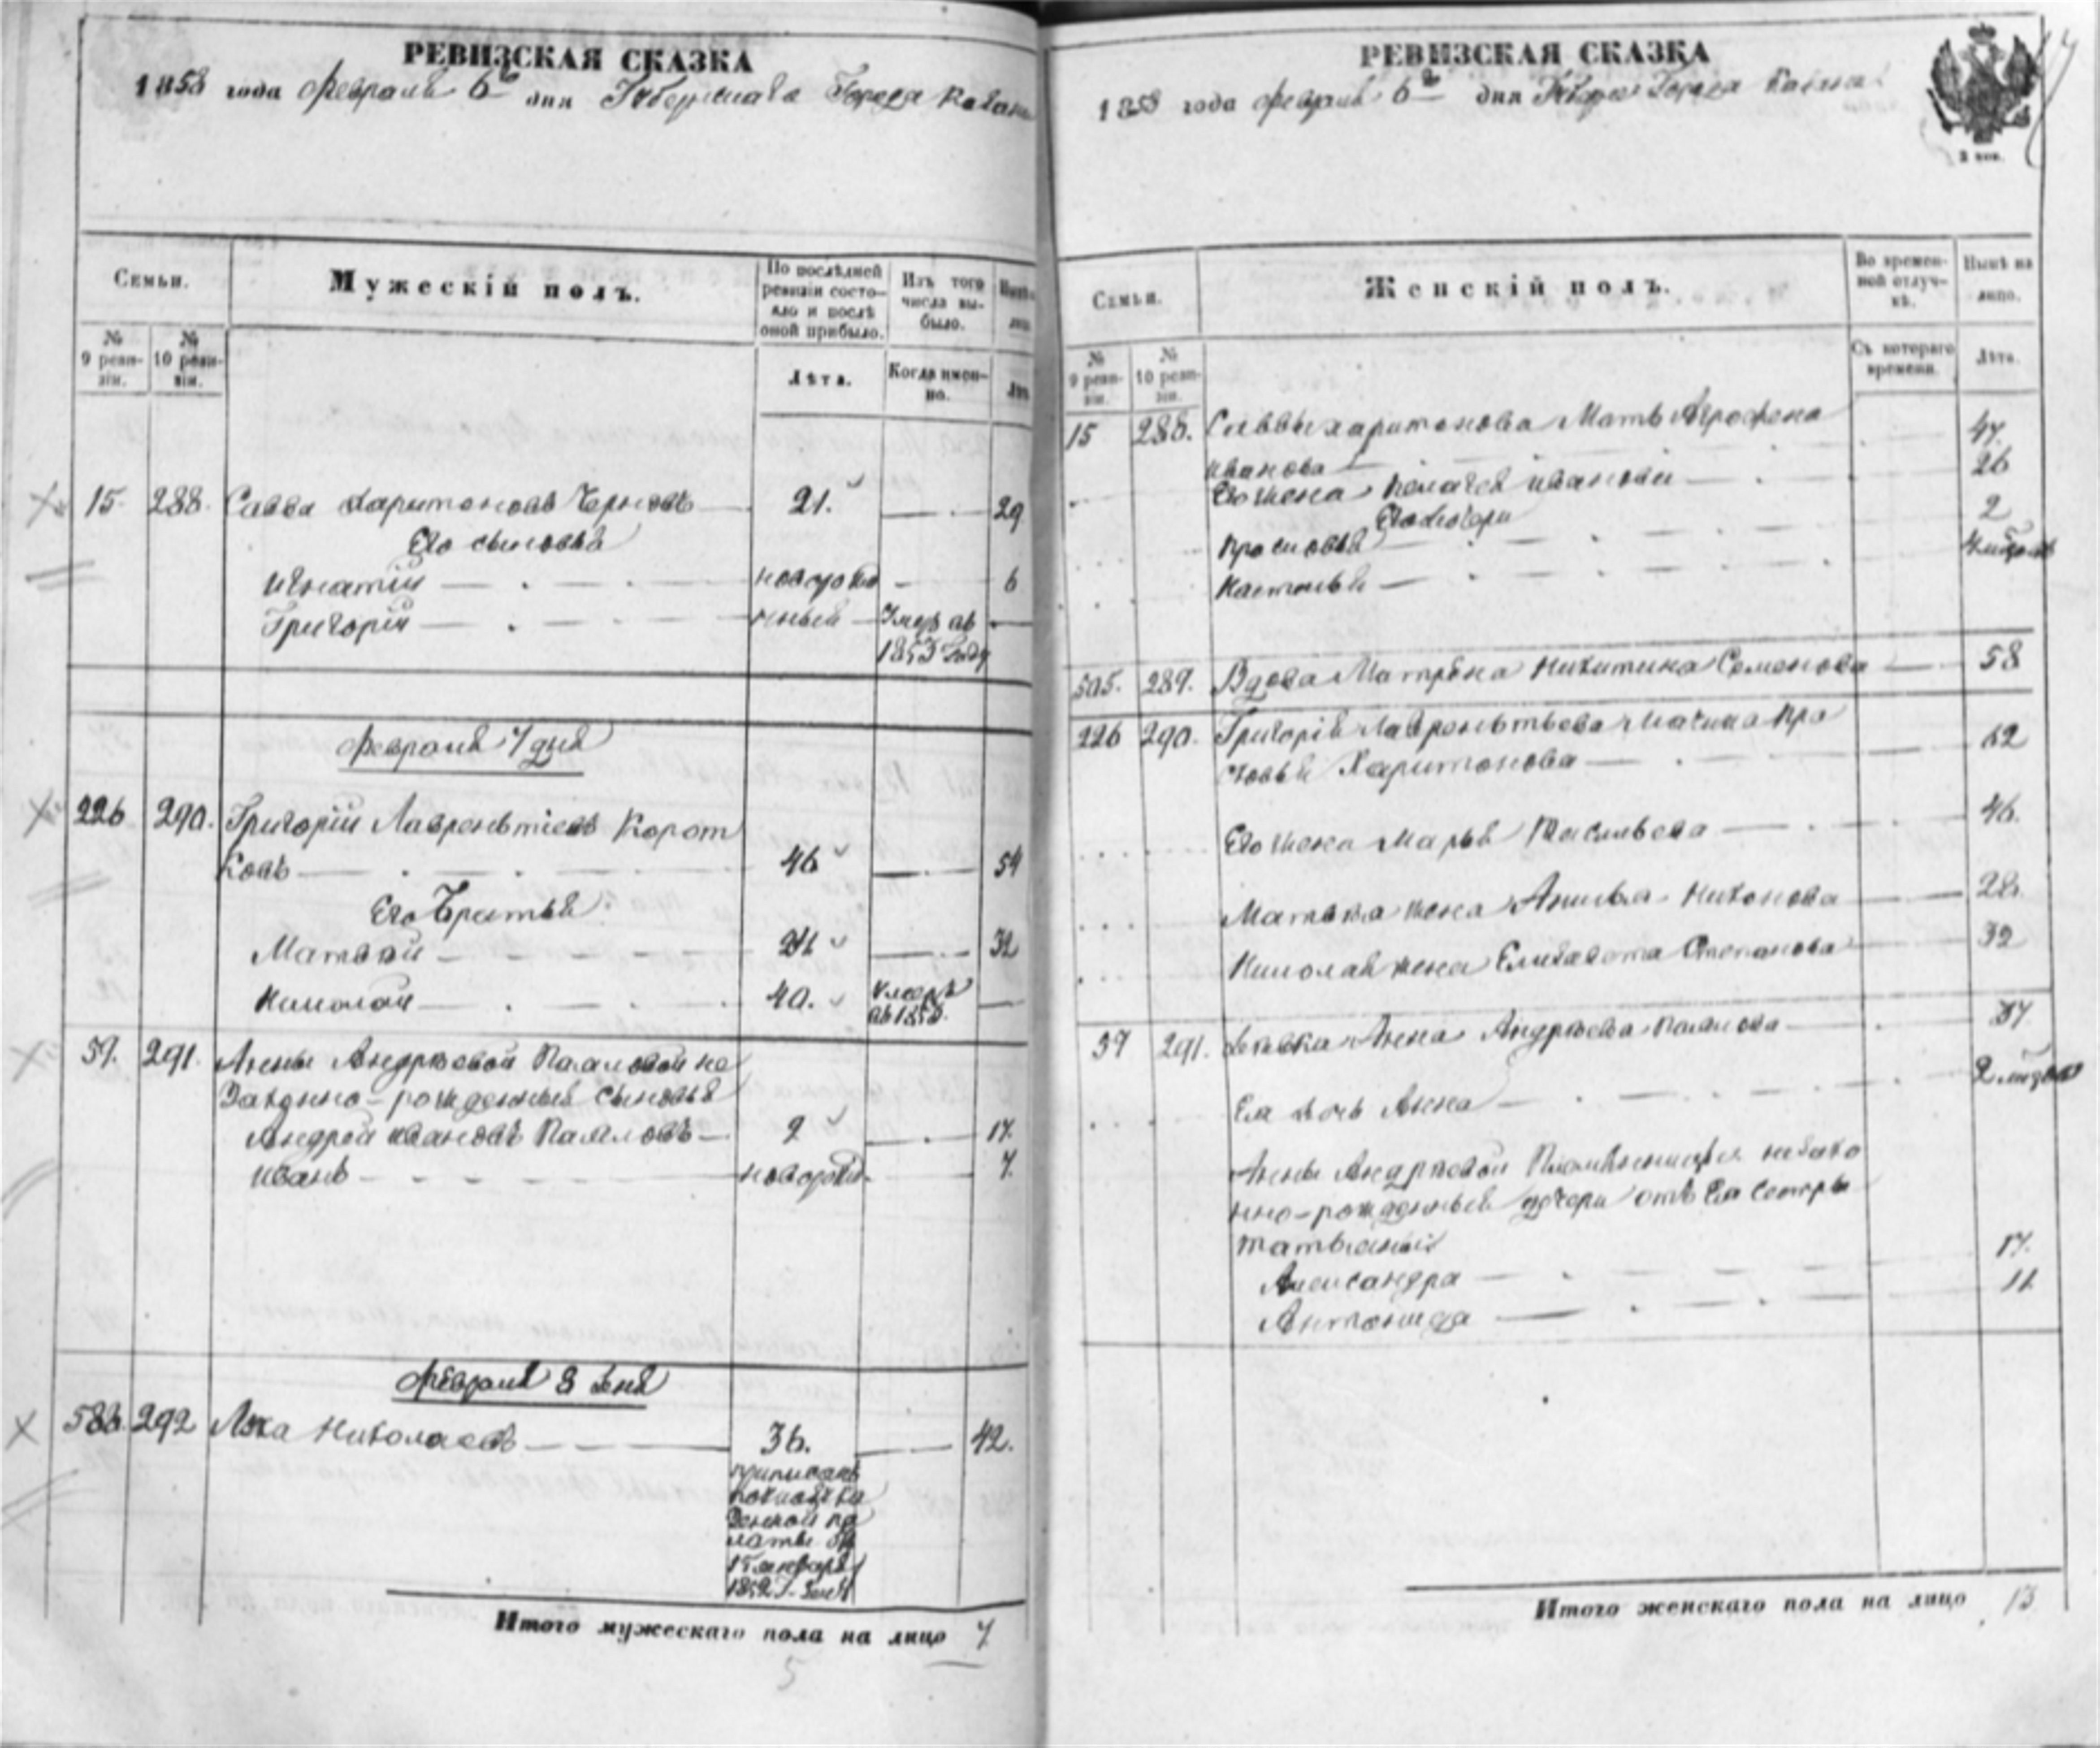 РЕВИЗСКАЯ СКАЗКА
1858 года Февраля 6 дня Губернскаго Города Казани
Семьи.
Мужескій полъ.
По послѣдней ревизіи состояло и послѣ оной прибыло.
Изъ того числа выбыло.
№ 9 ревизіи.
№ 10 ревизіи.
Лѣта.
Когда именно.
15. 288. Савва Харитоновъ Черновъ 21. 29
Его сыновья
Игнатій новорож 6
Григорій денный Умеръ въ
1853 году
Февраля 7 дня
226 290. Григорій Лаврентіевъ Корот
ковъ 46 54
Его Братья
Матвѣй 24 32
Николай 40. Умеръ
въ 185
59. 291. Анны Андреевой Паламовой не
законно-рожденныя сыновья
Андрей Ивановъ 9 17.
Иванъ новорож. 7.
Февраля 8 дня
586. 292 Лука Николаевъ 36. 42.
приписанъ
по указу ка
зенной па
латы отъ
15 января
1852 г.
Итого мужескаго пола на лицо 7
5
РЕВИЗСКАЯ СКАЗКА
1858 года Февраля 6 дня Губерн Города Казани
3 коп.
Семьи.
Женскій полъ.
Во временной отлучкѣ.
Нынѣ на лицо.
№ 9 ревизіи.
№ 10 ревизіи.
Съ котораго времени.
Лѣта.
15 288. Саввы Харитонова Мать Агрофена
Иванова 47.
Его жена Пелагея Иванова 26
Его дочери
Просковья 2
Настасья
505. 289. Вдова Матрёна Никитина Семенова 58
226 290. Григорія Лаврентьева Мачиха Про
сковья Харитонова 62
Его жена Марья Васильева 46.
Матвѣя жена Анисья Никонова 28.
Николая жена Елизавета Степанова 39
59 291. Девка Анна Андреева 37
Ея дочь Анна
Анны Андреевой Племянницы незако
нно-рожденныя дочери отъ Ея Сестры
Татьяны
Александра 17.
Антонида 11
Итого женскаго пола на лицо 13